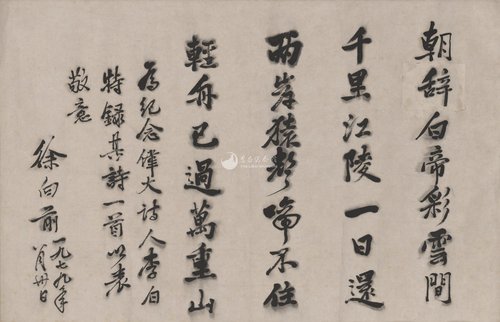 朝辞白帝彩雲間
千里江陵一日還
两岸猿聲啼不住
輕舟已過萬重山
為紀念偉大诗人李白
特録其詩一首以表
敬意
徐向前
一九七九年
月卅日